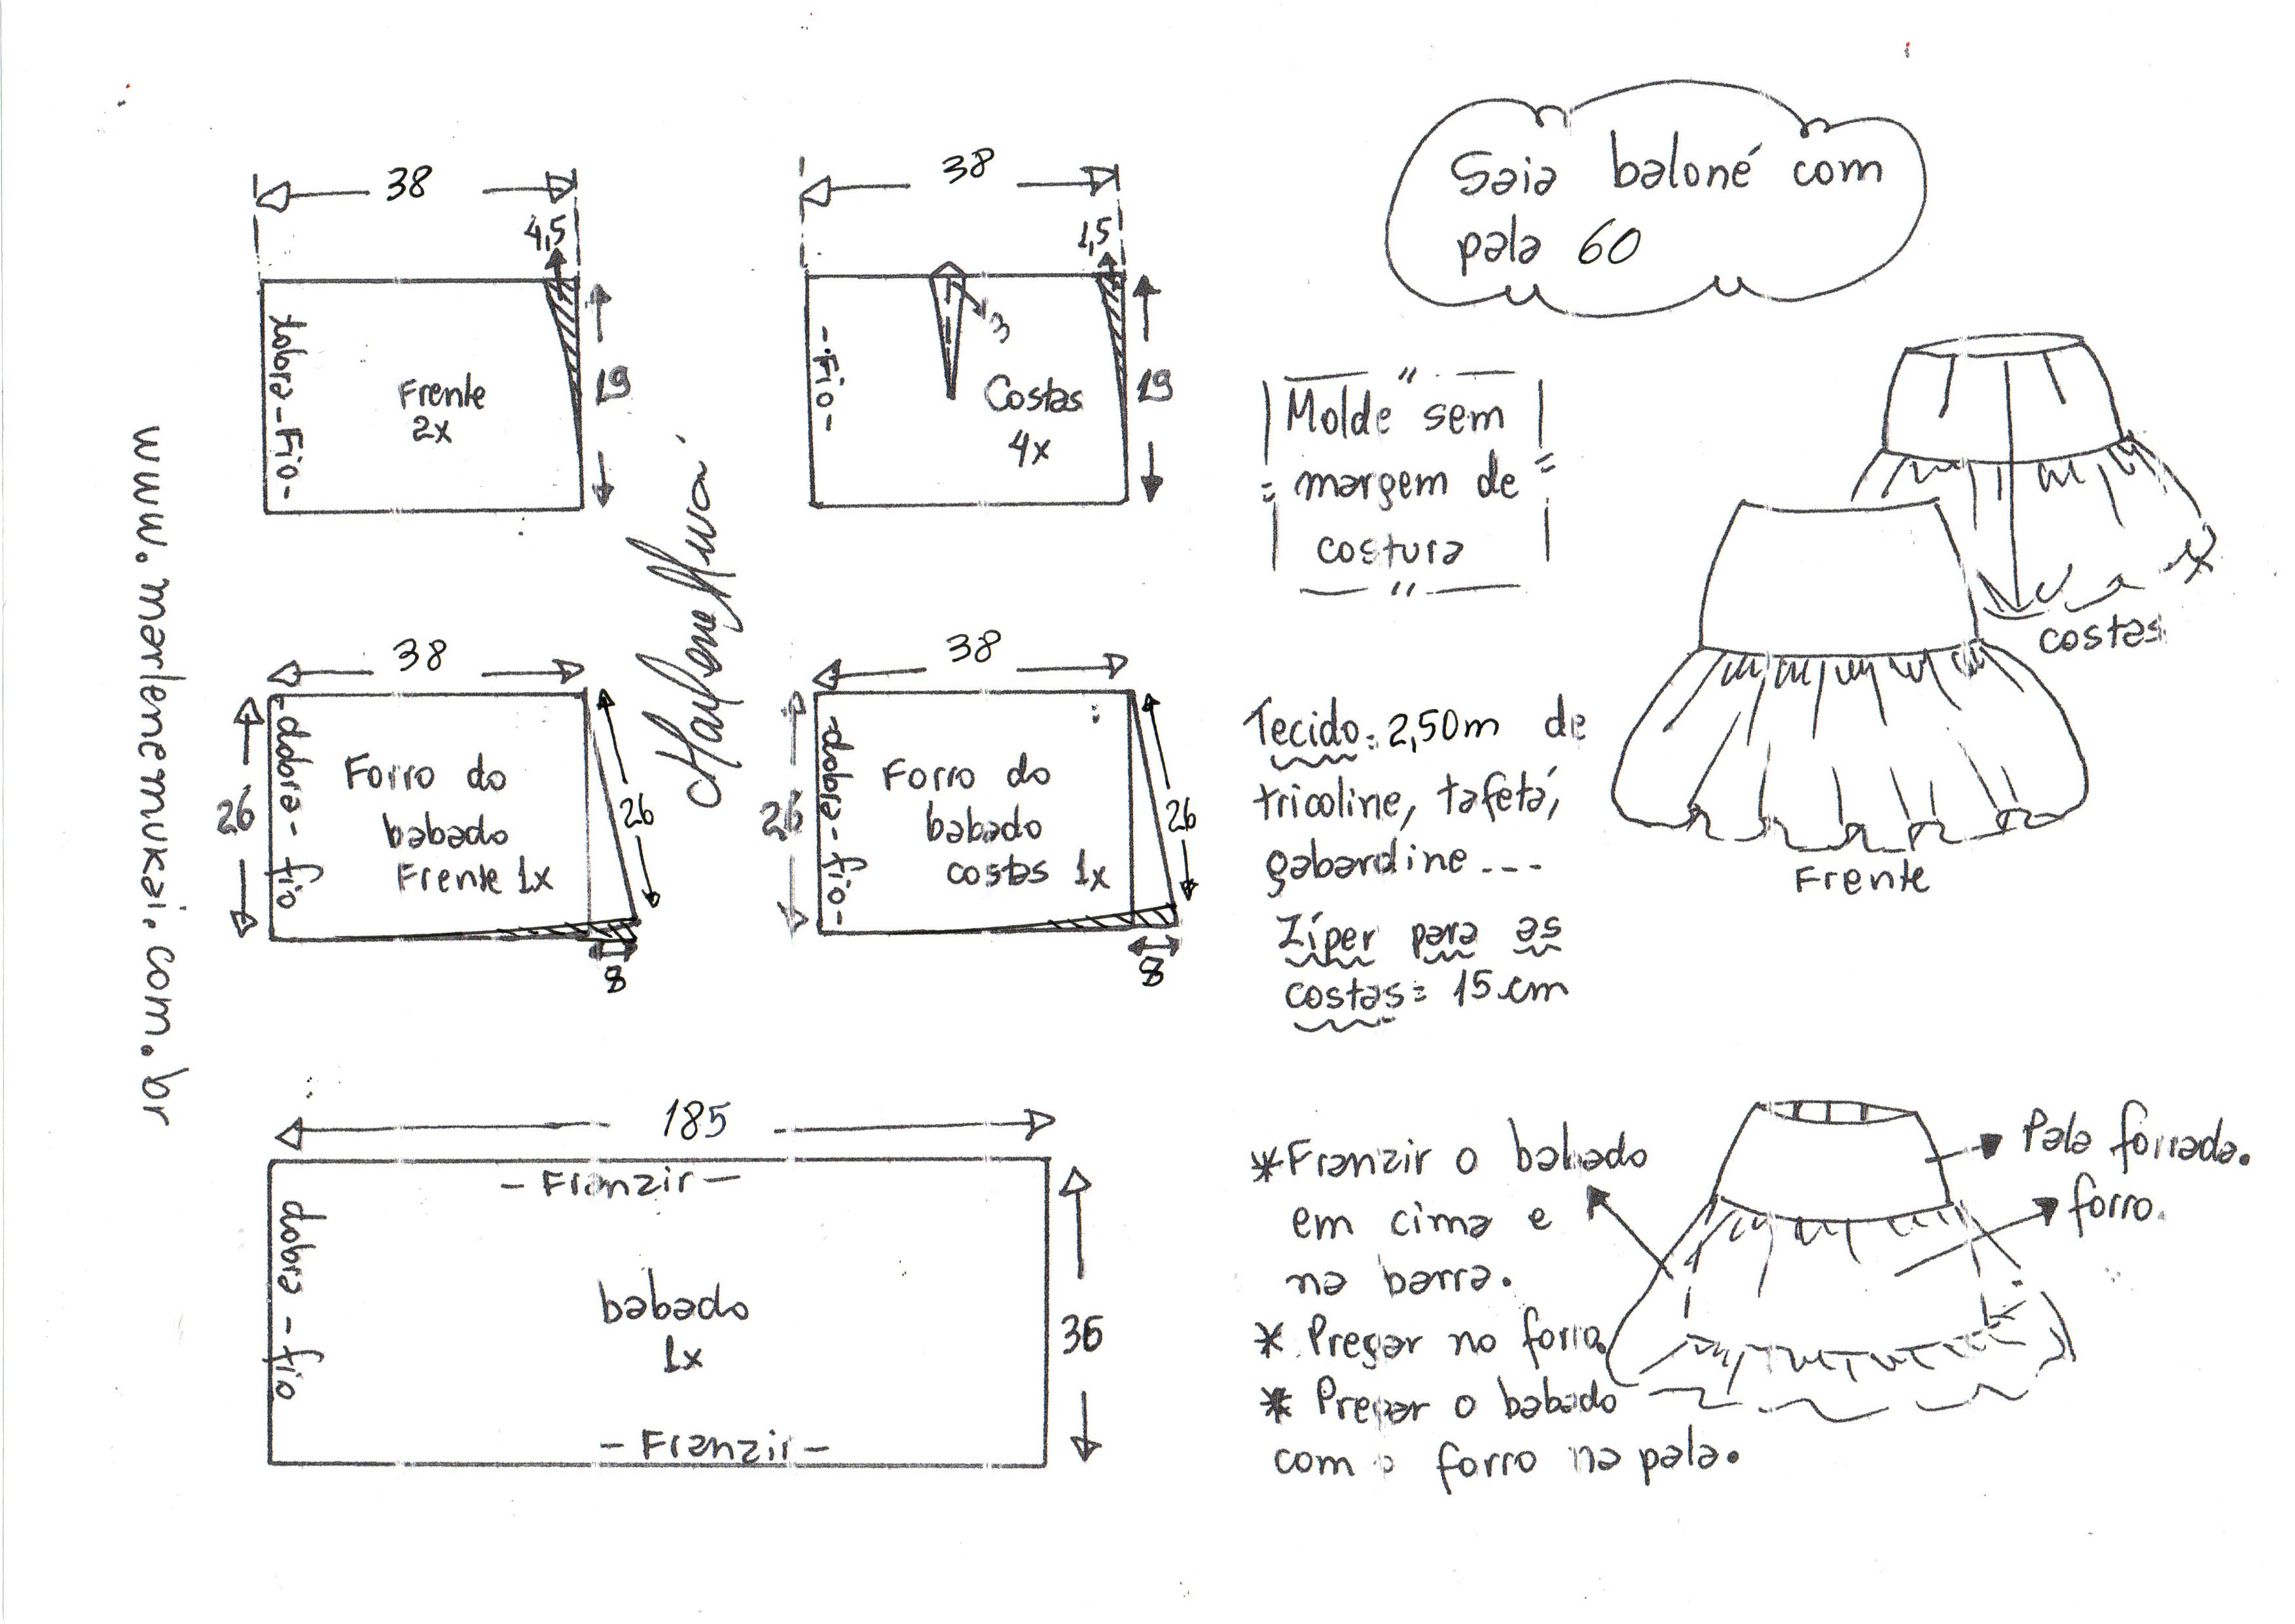 Saia baloné com
pala 60
38
4,5
dobra-Fio-
Frente
2x
19
38
1,5
3
-Fio-
Costas
4x
19
Molde sem
margem de
costura
costas
Frente
38
26
dobra-fio
Forro do
babado
Frente 1x
26
8
38
26
-dobra-fio-
Forro do
babado
costas 1x
26
8
Tecido: 2,50m de
tricoline, tafetá,
gabardine...
Zíper para as
costas= 15cm
185
-Franzir-
dobra-fio
babado
1x
36
-Franzir-
*Franzir o babado
em cima e
na barra.
* Pregar no forro.
* Pregar o babado
com o forro na pala.
Pala forrada.
forro.
www.marlenemukai.com.br